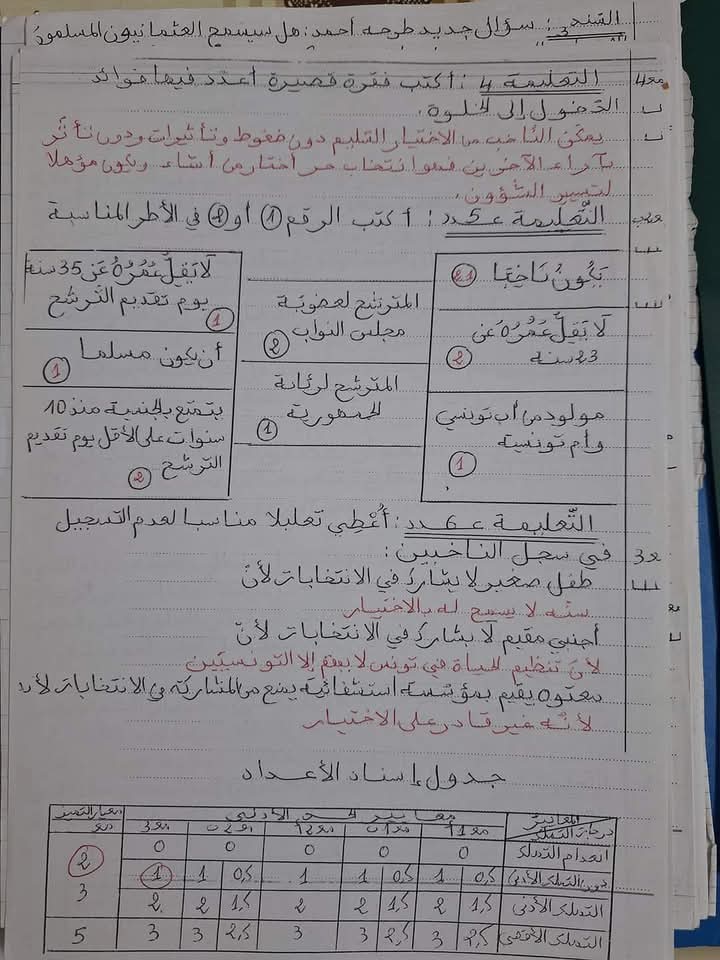 السّند 3 : سؤال جديد طرحه أحمد: هل سيسمح العثمانيون المسلمون
مع4 التعليمة 4 : أكتب فقرة قصيرة أعدّد فيها فوائد
الدّخول إلى الخلوة.
يمكّن النّاخب من الاختيار السّليم دون ضغوط وتأثيرات ودون تأثّر
بآراء الآخرين فهو انتخاب حر أختار من أشاء ويكون مؤهلا
لتسيير الشّؤون.
التّعليمة عـ5ـدد : أكتب الرقم 1 أو 2 في الأطر المناسبة
يَكُونُ نَاخِبًا 2،1
لَا يَقِلُّ عُمُرُهُ عَن 23 سنة 2
مولود من أب تونسي وأم تونسية 1
المترشح لعضوية مجلس النواب 2
المترشح لرئاسة الجمهورية 1
لَا يَقِلُّ عُمُرُهُ عَن 35 سنة يوم تقديم التّرشح 1
أن يكون مسلما 1
يتمتع بالجنسية منذ 10 سنوات على الأقل يوم تقديم الترشح 2
التّعليمة عـ6ـدد : أُعْطِي تعليلا مناسبا لعدم التسجيل
مع3 في سجل الناخبين :
طفل صغير لا يشارك في الانتخابات لأنّ
سنّه لا يسمح له بالاختيار
أجنبي مقيم لا يشارك في الانتخابات لأنّ
لأنّ تنظيم الحياة في تونس لا يهم إلا التونسيّين
معتوه يقيم بمؤسّسة استشفائية يمنع من المشاركة في الانتخابات لأنه
لأنّه غير قادر على الاختيار
جدول إسناد الأعداد
المعايير معايير الحد الأدنى معيار التميز
درجات التملك مع1 مع1 مع2 مع2 مع3 مع
انعدام التملك 0 0 0 0 0
دون التملك الأدنى 0,5 1 0,5 1 1 0,5 1 1 2
التملك الأدنى 1,5 2 1,5 2 2 1,5 2 2 3
التملك الأقصى 2,5 3 2,5 3 3 2,5 3 3 5